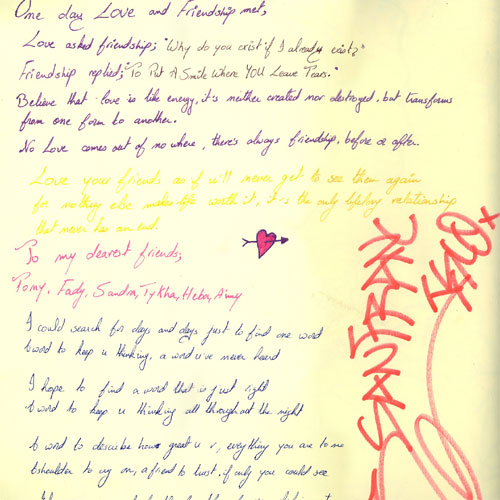 One day Love and Friendship met,
Love asked friendship; "Why do you exist if I already exist?"
Friendship replied; "To Put A Smile Where YOU Leave Tears."
Believe that love is like energy, it's neither created nor destroyed, but transforms
from one form to another.
No Love comes out of no where, there's always friendship, before or after.
Love your friends as if u'll never get to see them again
for nothing else makes life worth it, it is the only lifelong relationship
that never has an end.
To my dearest friends;
Tomy, Fady, Sandra, Tykha, Heba, Aimy
I could search for days and days just to find one word
A word to keep u thinking, a word u've never heard
I hope to find a word that is just right
A word to keep u thinking all through out the night
A word to describe how great u r, everything you are to me
A shoulder to cry on, a friend to trust, if only you could see